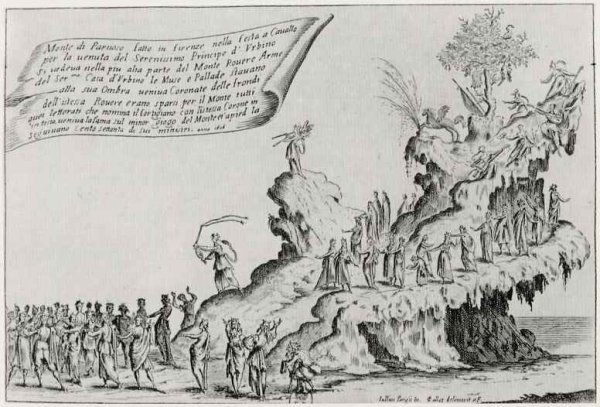 Monte di Parnaso fatto in firenze nella festa a Cavallo
per la venuta del Serenissimo Principe d'Urbino
Si vedeva nella piu alta parte del Monte Rovere Arme
del Ser.mo Casa d'Urbino le Muse e Pallade stavano
alla sua Ombra veniva Coronate delle frondi
dell'istessa Rovere erano sparsi per il Monte tutti
quei letterati che nomina il Cortigiano con l'istessa Corone in
testa veniva la fama sul minor giogo del Monte et a pied la
seguivano Cento settanta de suoi ministri. anno 1616
Iulius Parigii in. Callot delineavit et F.